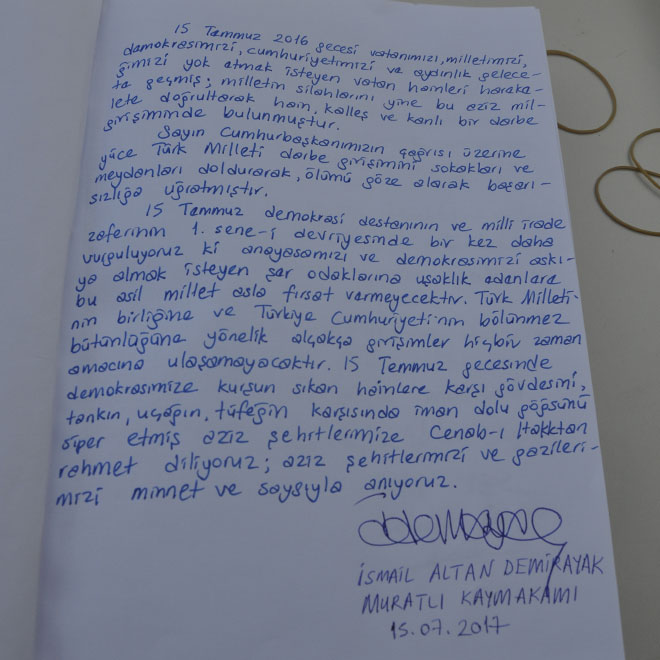 15 Temmuz 2016 gecesi vatanımızı, milletimizi,
demokrasimizi, cumhuriyetimizi ve aydınlık gelece-
ğimizi yok etmek isteyen vatan hainleri hareke-
te geçmiş; milletin silahlarını yine bu aziz mil-
lete doğrultarak hain, kalleş ve kanlı bir darbe
girişiminde bulunmuştur.
Sayın Cumhurbaşkanımızın çağrısı üzerine
yüce Türk Milleti darbe girişimini sokakları ve
meydanları doldurarak, ölümü göze alarak başarı-
sızlığa uğratmıştır.
15 Temmuz demokrasi destanının ve milli irade
zaferinin 1. sene-i devriyesinde bir kez daha
vurguluyoruz ki anayasamızı ve demokrasimizi askı-
ya almak isteyen şer odaklarına uşaklık edenlere
bu asil millet asla fırsat vermeyecektir. Türk Milleti-
nin birliğine ve Türkiye Cumhuriyeti'nin bölünmez
bütünlüğüne yönelik alçakça girişimler hiçbir zaman
amacına ulaşamayacaktır. 15 Temmuz gecesinde
demokrasimize kurşun sıkan hainlere karşı gövdesini,
tankın, uçağın, tüfeğin karşısında iman dolu göğsünü
siper etmiş aziz şehitlerimize Cenab-ı Hakktan
rahmet diliyoruz; aziz şehitlerimizi ve gazileri-
mizi minnet ve saygıyla anıyoruz.
İSMAİL ALTAN DEMİRAYAK
MURATLI KAYMAKAMI
15.07.2017